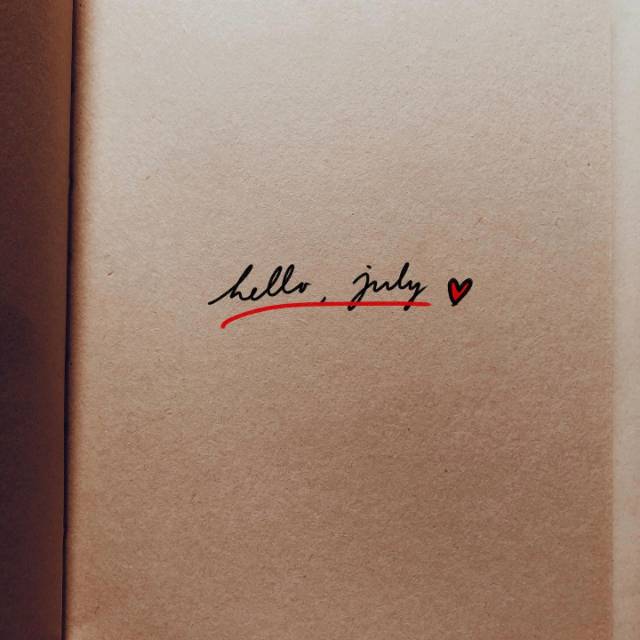 hello, july ♥